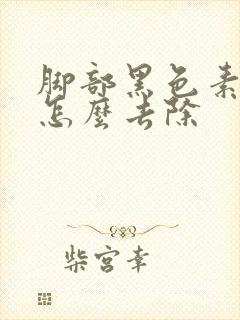 脚部黑色素
怎麼去除
柴宫幸